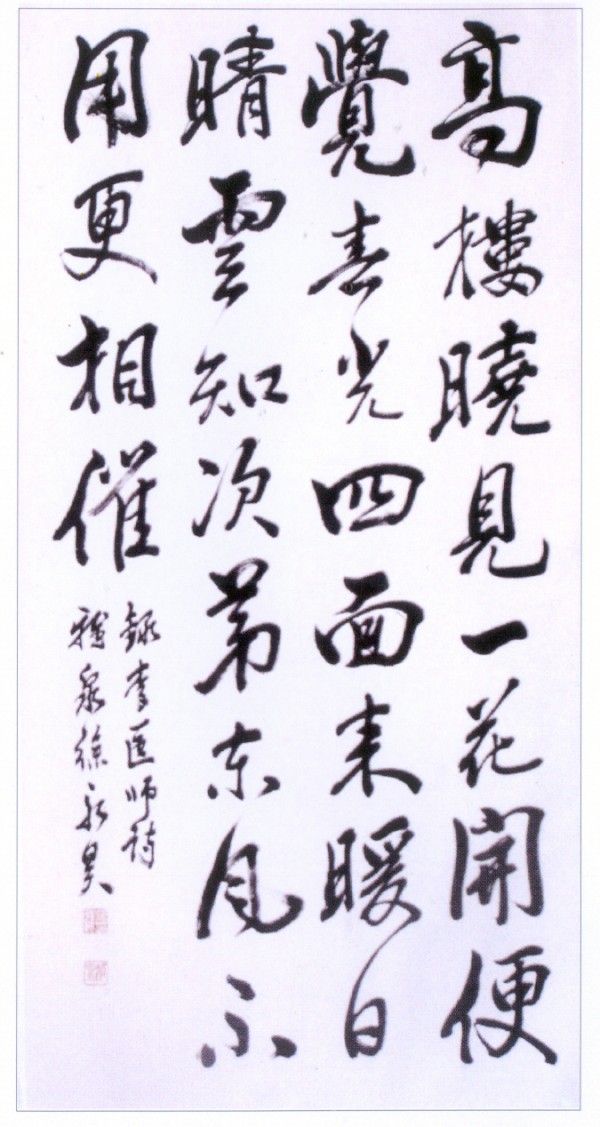 高樓曉見一花開便
覺春光四面来暖日
晴雲知次第東風不
用更相催
錄李匡師詩
泉徐永昊